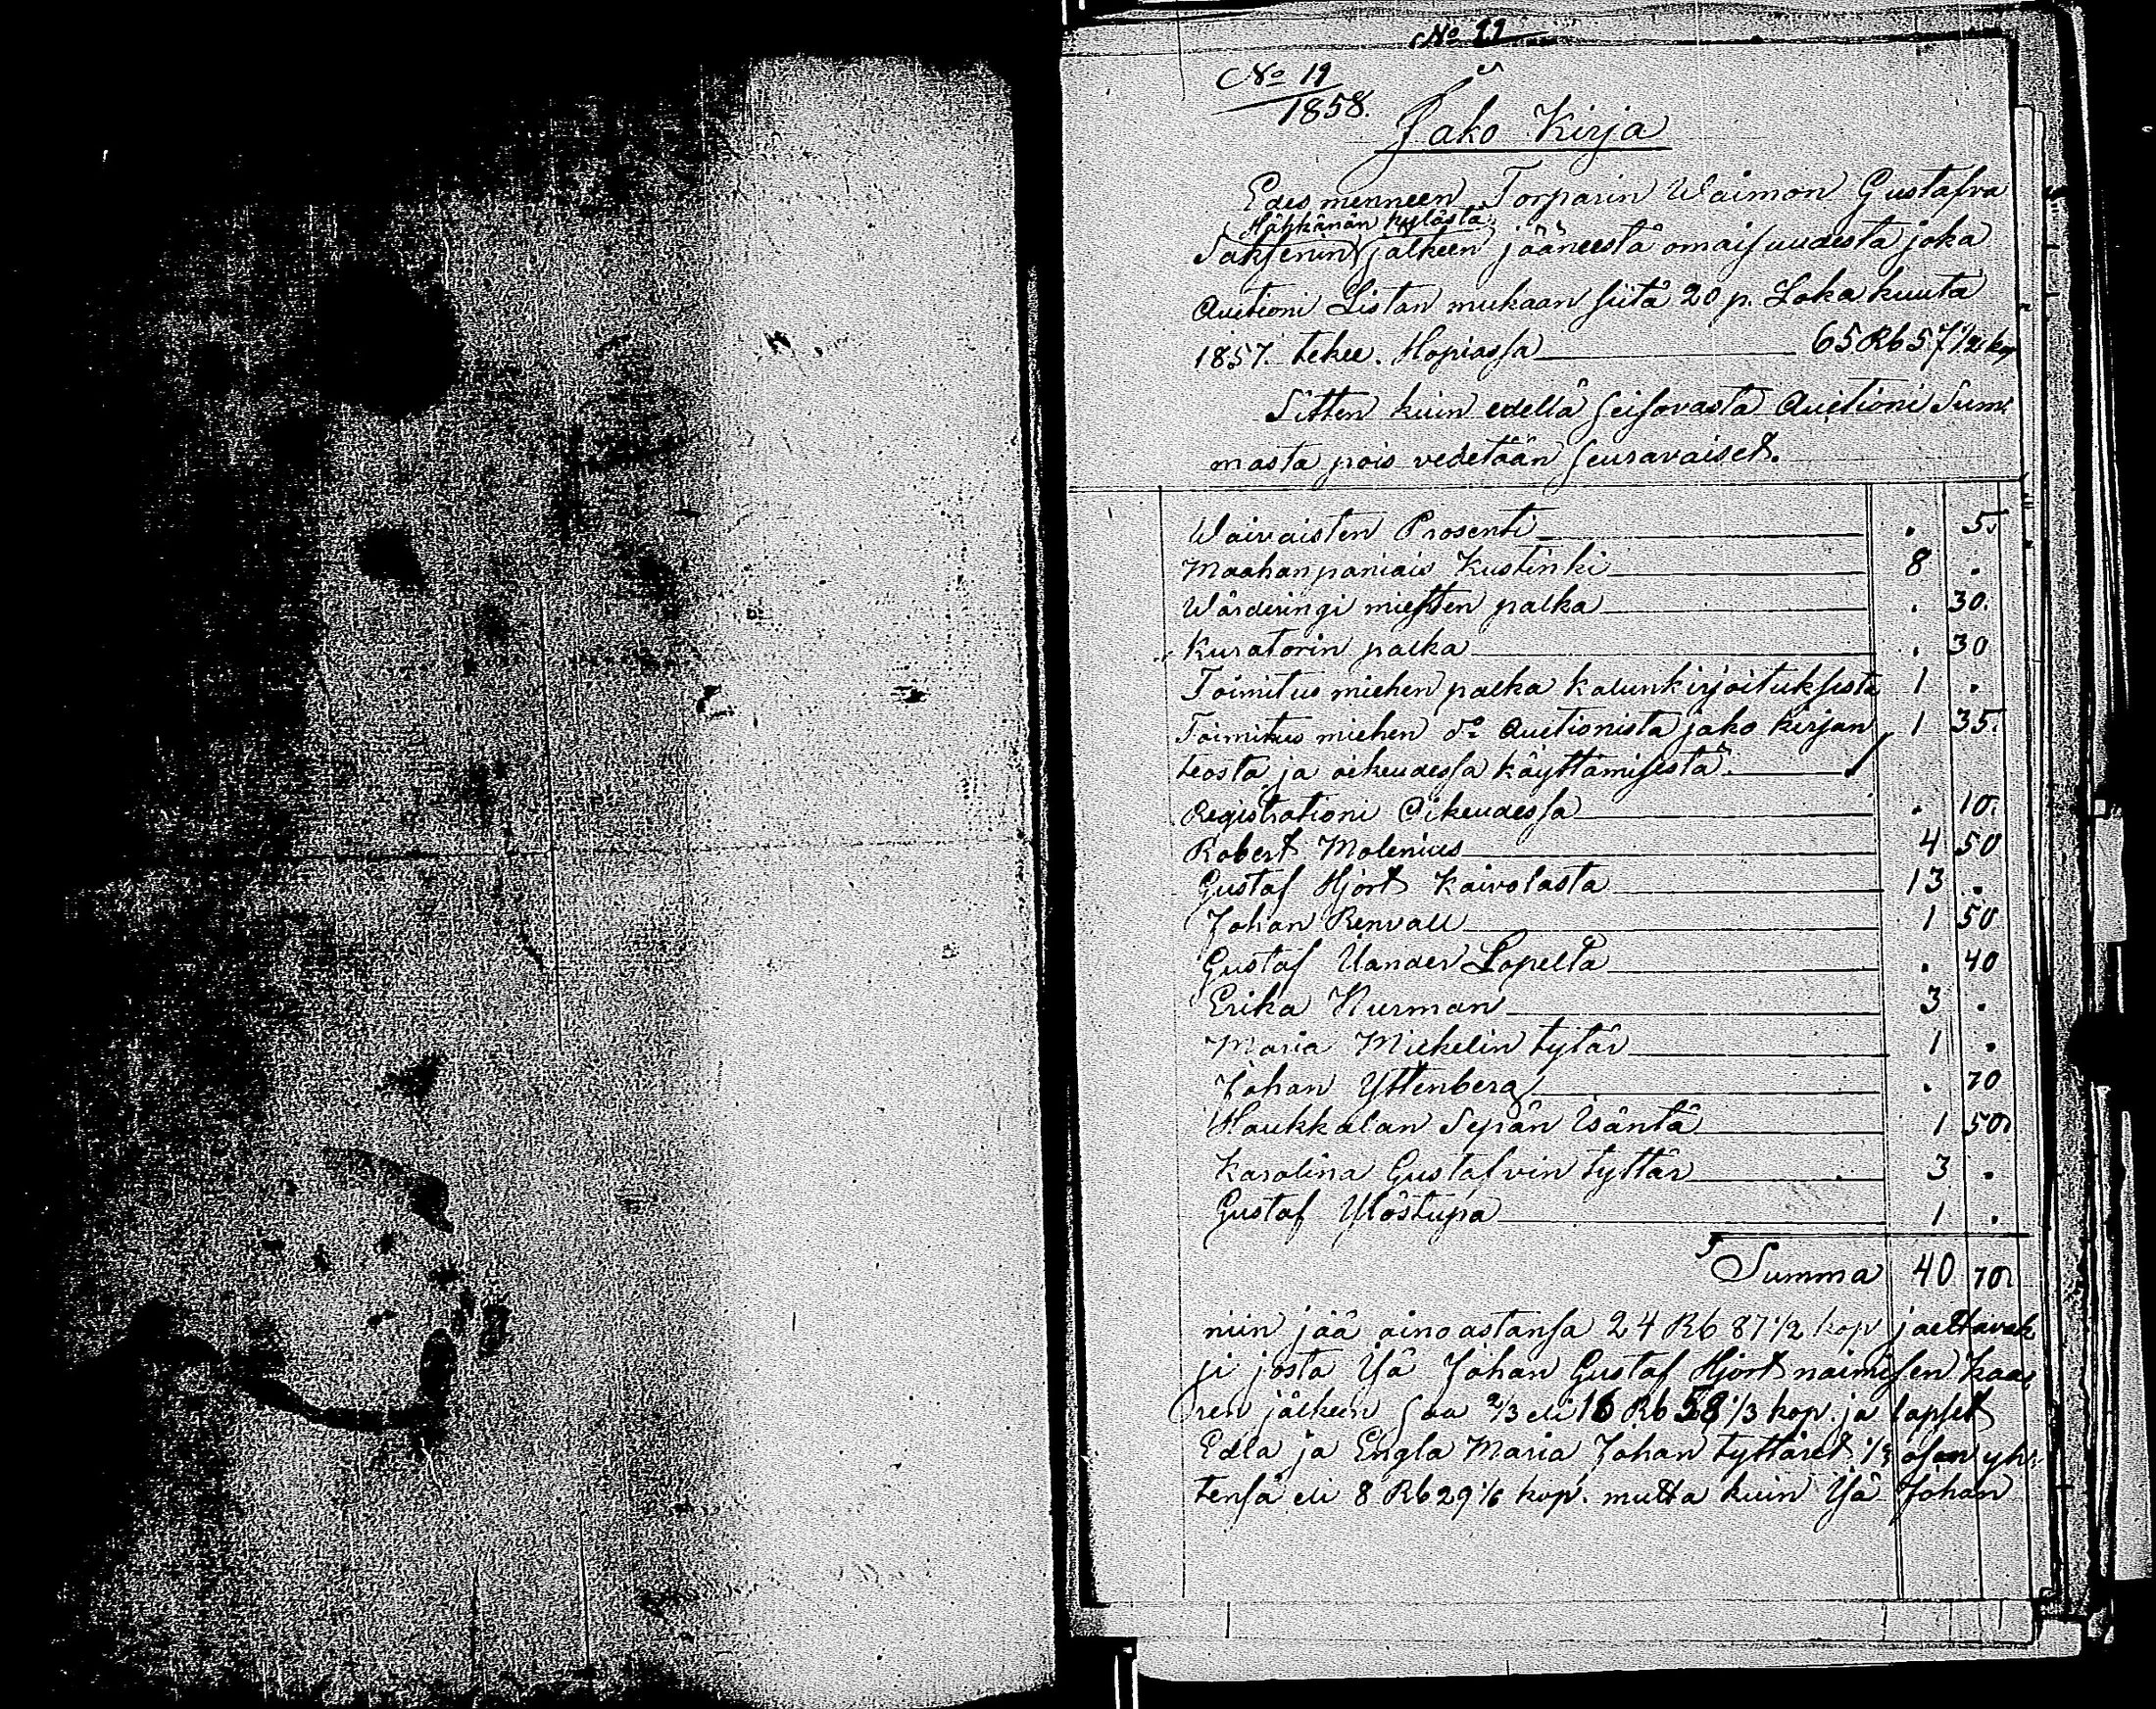 No 11
No 19
1858.
Jako Kirja
Edes menneen Torparin Waimon Gustafva
Häkkänän kylästä
Saksenin jälkeen jääneestä omaisuudesta joka
Auctioni Listan mukaan siitä 20 p. Lokakuuta
1857. tekee. Hopiassa 65 Rb 57 1/2 kop
Sitten kuin edellä seisovasta Auctioni Sum-
masta pois vedetään seuravaiset.
Waivaisten Prosenti . 5.
Maahanpaniais Kustinki 8 .
Wärderingi miesten palka . 30.
Kuratorin palka . 30
Toimitus miehen palka kalunkirjoituksesta 1 .
Toimitus miehen do Auctionista jako kirjan 1 35.
teosta ja oikeudessa käyttämisestä.
Registrationi Oikeudessa . 10.
Robert Molenius 4 50
Gustaf Hjort Kaivolasta 13 .
Johan Renvall 1 50
Gustaf Uander Lopelta . 40
Erika Nurman 3 .
Maria Mickelin tytär 1 .
Johan Yttenberg . 70
Haukkalan Sepän Isäntä 1 50.
Karolina Gustafvin tyttär 3 .
Gustaf Ylöstupa 1 .
Summa 40 70
niin jää ainoastansa 24 Rb 87 1/2 kop jaettavak
si josta Isä Johan Gustaf Hjort naimisen kaa-
ren jälkeen saa 2/3 eli 16 Rb 58 1/3 kop. ja lapset
Edla ja Engla Maria Johan tyttäret 1/3 osan yh-
tensä eli 8 Rb 29 1/6 kop. mutta kuin Isä Johan